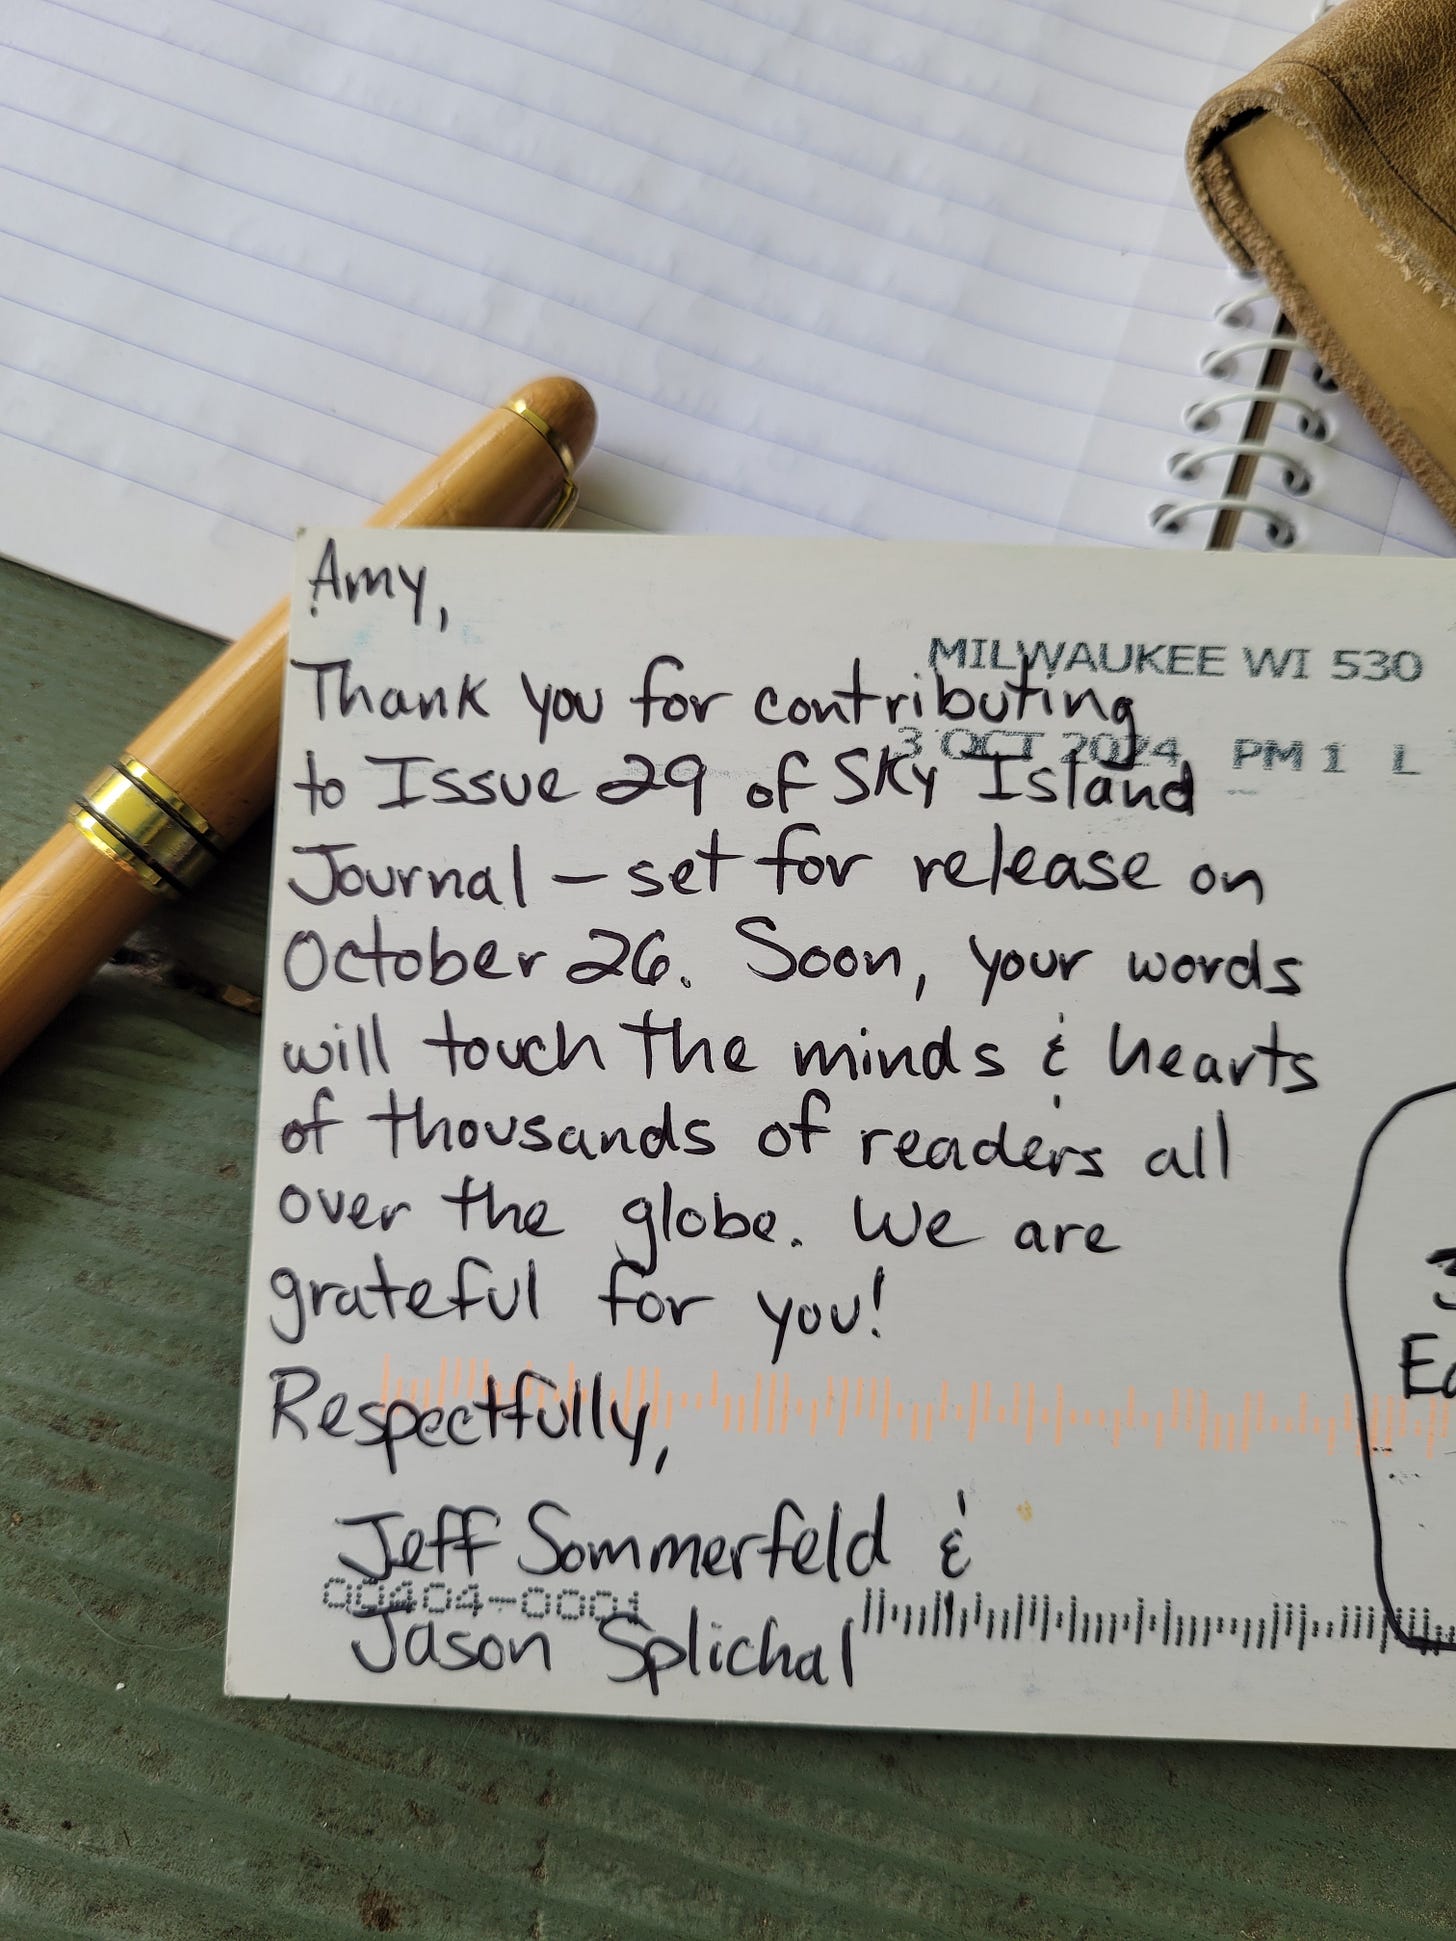 Amy,
MILWAUKEE WI 530
Thank you for contributing
3 OCT 2024 PM 1 L
to Issue 29 of Sky Island
Journal – set for release on
October 26. Soon, your words
will touch the minds & hearts
of thousands of readers all
over the globe. We are
grateful for you!
Respectfully,
Jeff Sommerfeld &
00404-0001
Jason Splichal